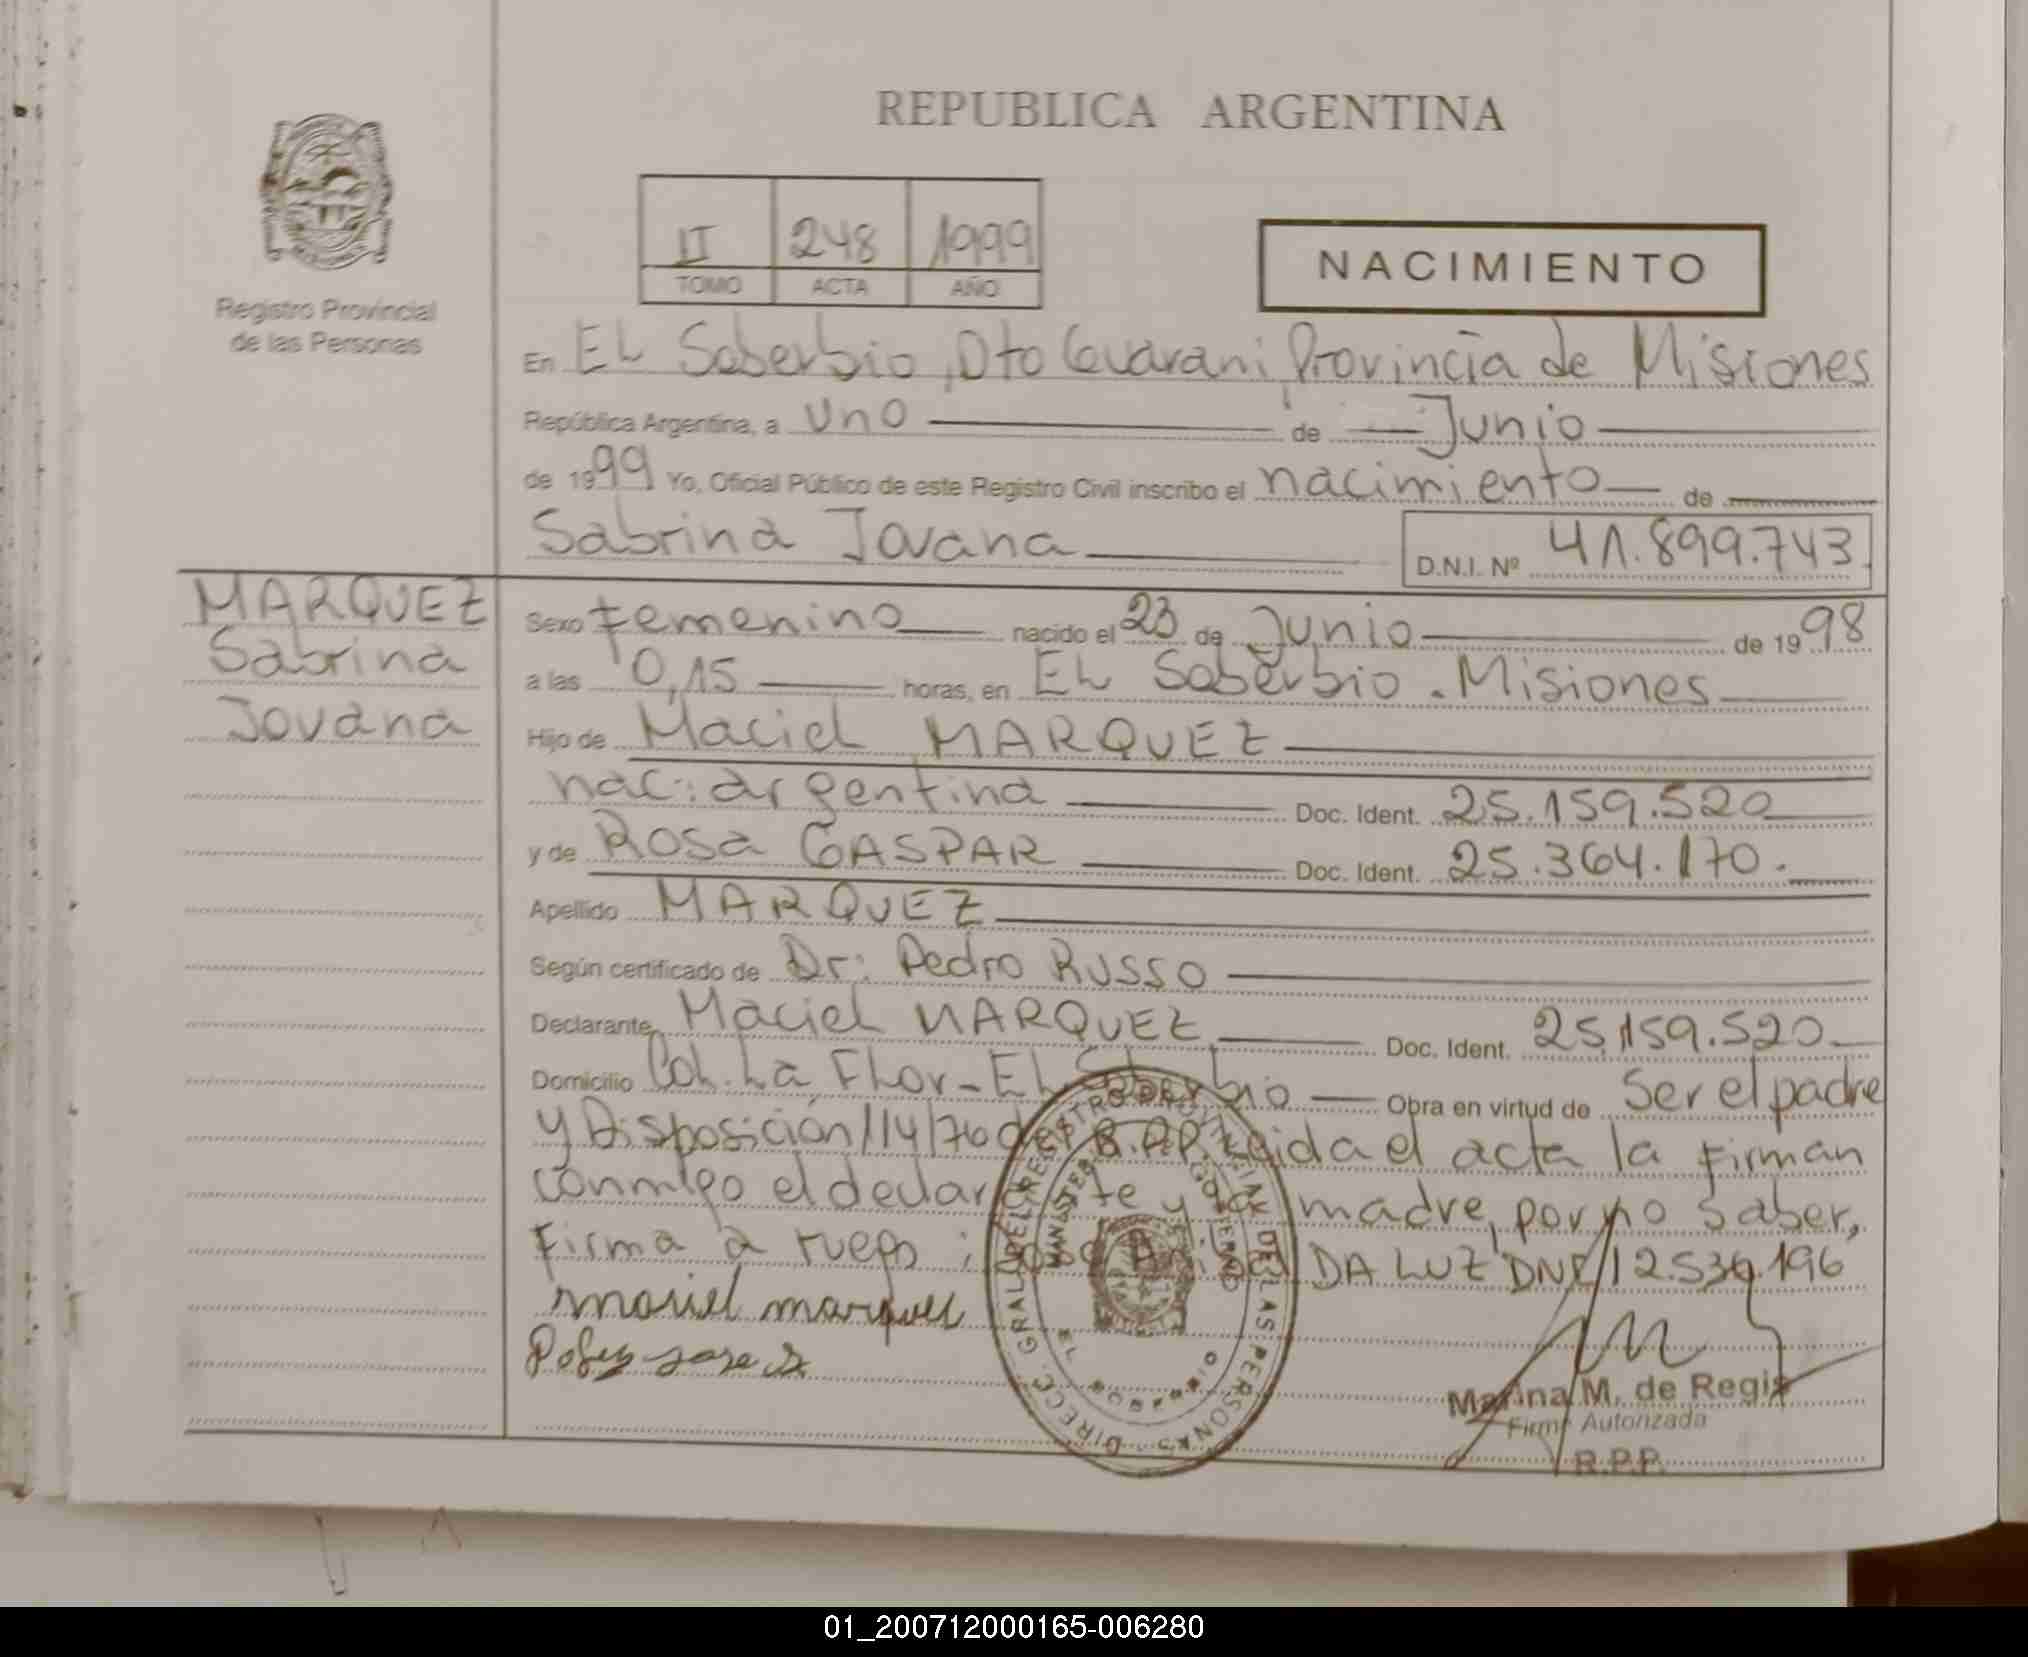 REPUBLICA ARGENTINA
Registro Provincial
de las Personas
II 248 1999
TOMO ACTA AÑO
NACIMIENTO
En EL Soberbio, Dto Guarani, Provincia de Misiones
República Argentina, a uno de Junio
de 1999 Yo, Oficial Público de este Registro Civil inscribo el nacimiento de
Sabrina Jovana D.N.I. Nº 41.899.743
MARQUEZ
Sabrina
Jovana
Sexo femenino nacido el 23 de Junio de 1998
a las 0,15 horas, en EL Soberbio. Misiones
Hijo de Maciel MARQUEZ
nac: argentina Doc. Ident. 25.159.520
y de Rosa GASPAR Doc. Ident. 25.364.170.
Apellido MARQUEZ
Según certificado de Dr: Pedro RUSSO
Declarante Maciel MARQUEZ Doc. Ident. 25.159.520
Domicilio Col. La Flor - EL Soberbio Obra en virtud de Ser el padre
y Disposición 114/76 del Leida el acta la firman
conmigo el declarante y la madre, por no saber,
firma a ruego DA LUZ DNI 12.536.196
maciel marquez
DIRECC. GRAL. DEL REGISTRO PROVINCIAL DE LAS PERSONAS
MINISTERIO DE GOBIERNO
Marina M. de Regis
Firma Autorizada
R.P.P.
01_200712000165-006280